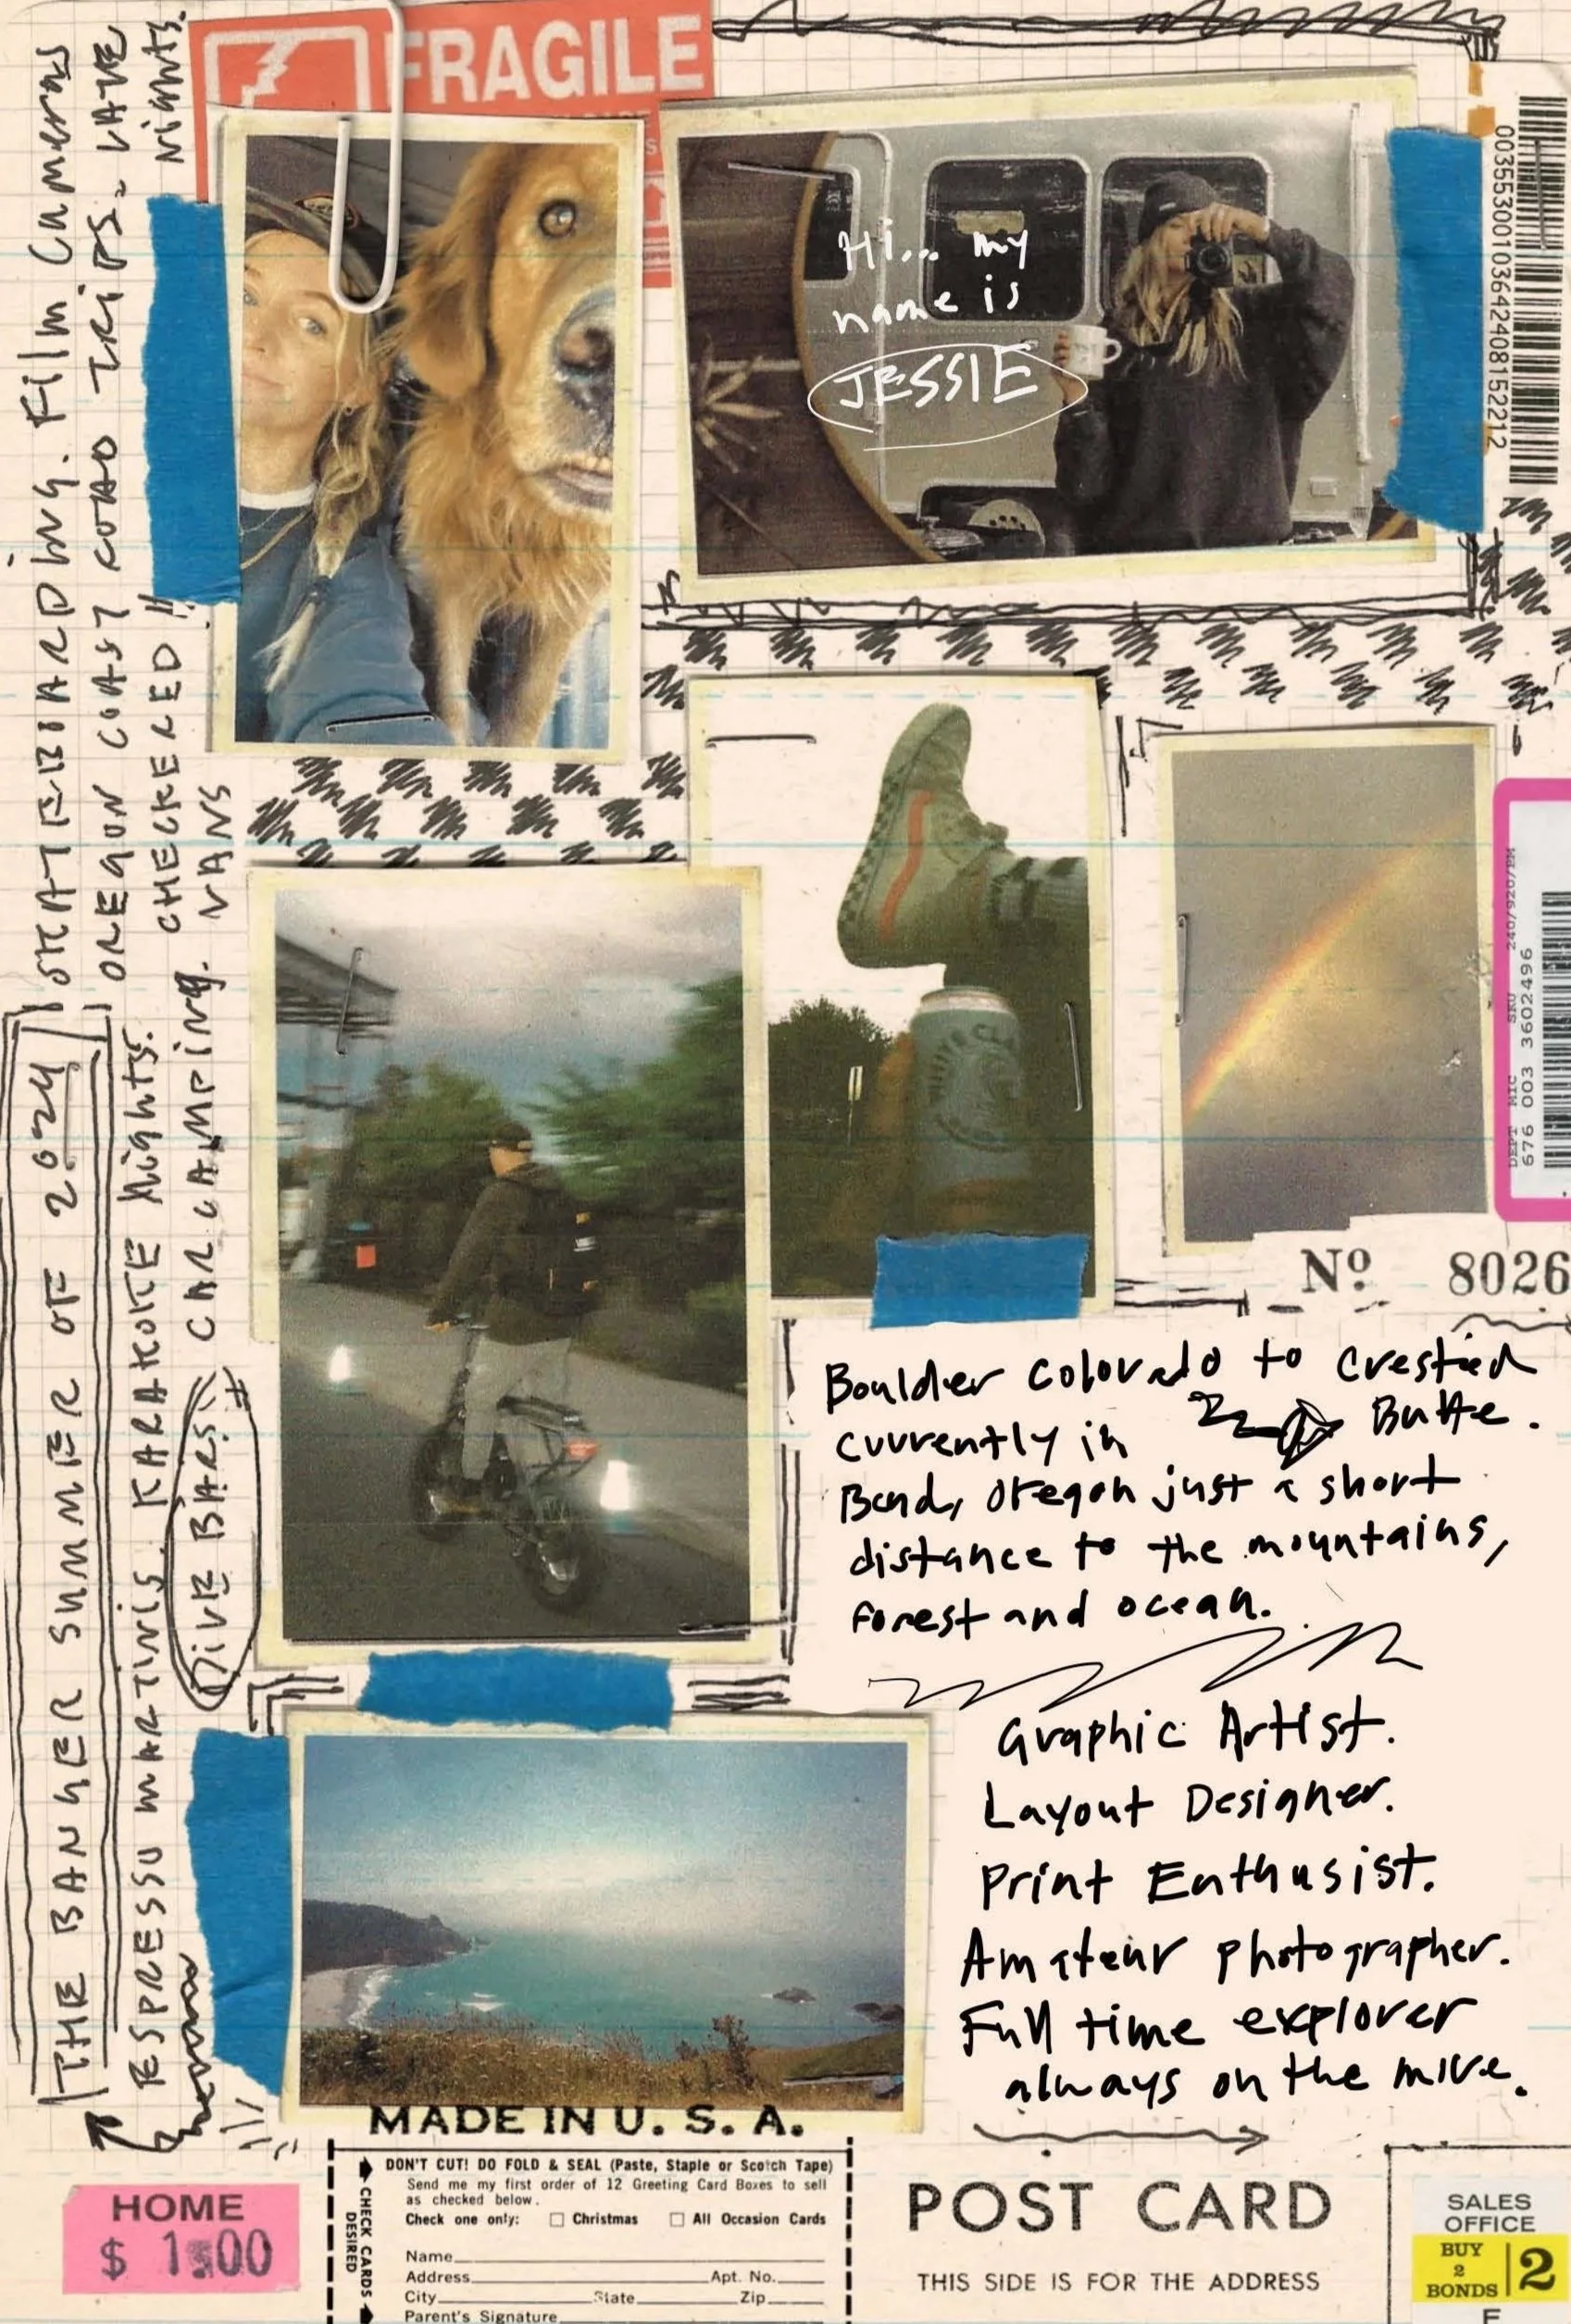 FRAGILE
Hi... my
name is
JESSIE
00355300103642408152212
SKATEBOARDING. Film Cameras
OREGON COAST ROAD TRIPS. LATE
NIGHTS.
CHECKERED !!
VANS
THE BANGER SUMMER OF 2024
ESPRESSO MARTINIS. KARAKOKE Nights.
DIVE BARS. CAR CAMPING.
DEPT MIC SKU 240/920/PM
676 003 3602496
Nº 8026
Boulder Colorado to Crested
Butte.
currently in
Bend, Oregon just a short
distance to the mountains,
Forest and ocean.
Graphic Artist.
Layout Designer.
Print Enthusist.
Amateur photographer.
Full time explorer
always on the move.
MADE IN U. S. A.
DON'T CUT! DO FOLD & SEAL (Paste, Staple or Scotch Tape)
Send me my first order of 12 Greeting Card Boxes to sell
as checked below.
Check one only: Christmas All Occasion Cards
CHECK CARDS
DESIRED
Name
Address Apt. No.
City State Zip
Parent's Signature
HOME
$ 1.00
POST CARD
THIS SIDE IS FOR THE ADDRESS
SALES
OFFICE
BUY
2
BONDS
2